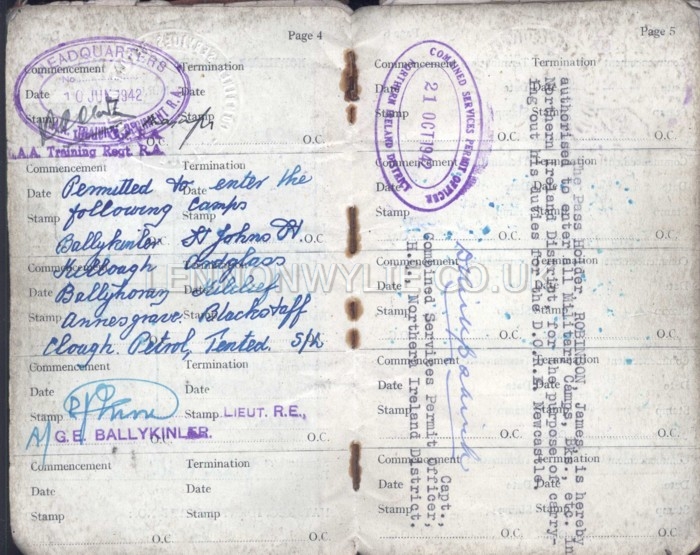 Page 4
HEADQUARTERS
Commencement Termination
Date 10 JUN 1942 Date
Stamp Stamp
O.C
A.A Training Regt. R.A.
Commencement Termination
Date Date
Stamp Stamp
O.C
Permitted to enter the
following camps
Ballykinler St Johns Pt
Killough Ardglass
Ballyhornan
Annesgrave. Blackstaff
Clough. Petrol, Tented.
Commencement Termination
Date Date
Stamp Stamp
O.C
Commencement Termination
Date Date
Stamp Stamp. LIEUT. R.E.,
G.E. BALLYKINLER.
O.C.
Commencement Termination
Date Date
Stamp Stamp
O.C
Page 5
Commencement Termination
Date Date
Stamp Stamp
O.C.
COMBINED SERVICES PERMIT OFFICER
21 OCT 1942
NORTHERN IRELAND DISTRICT
The Pass Holder, ROBINSON, James, is hereby
authorised to enter all Military Camps, Bks., etc. in
Northern Ireland District for the purpose of carry-
ing out his duties for the D.C.R.E. Newcastle.
Capt.,
Combined Services Permit Officer,
H.Q., Northern Ireland District.
Termination
Date
Stamp
O.C.
Termination
Date
Stamp
O.C.
Commencement Termination
Date Date
Stamp Stamp
O.C.
Commencement Termination
Date Date
Stamp Stamp
O.C.
LENNONWYLIE.CO.UK